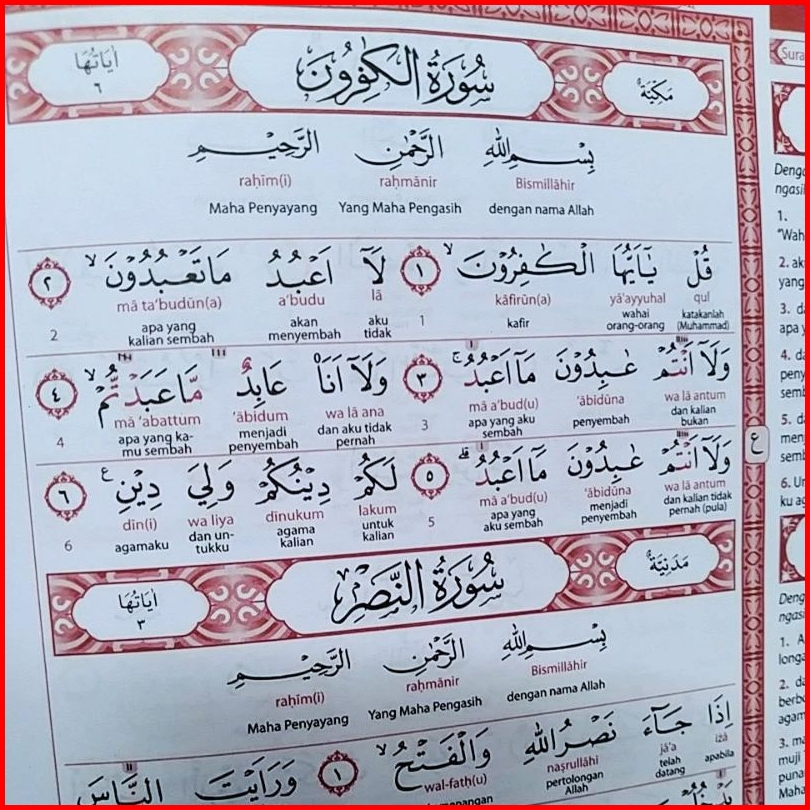 سُورَةُ الْكٰفِرُونَ
مَكِّيَّةٌ
اٰيَاتُهَا
٦
بِسْمِ اللهِ الرَّحْمٰنِ الرَّحِيْمِ
Bismillāhir raḥmānir raḥīm(i)
dengan nama Allah Yang Maha Pengasih Maha Penyayang
قُلْ يٰٓاَيُّهَا الْكٰفِرُوْنَۙ ١ لَآ اَعْبُدُ مَا تَعْبُدُوْنَۙ ٢
qul yā'ayyuhal kāfirūn(a) lā a‘budu mā ta‘budūn(a)
katakanlah (Muhammad) wahai orang-orang kafir 1 aku tidak akan menyembah apa yang kalian sembah 2
وَلَآ اَنْتُمْ عٰبِدُوْنَ مَآ اَعْبُدُۚ ٣ وَلَآ اَنَا۠ عَابِدٌ مَّا عَبَدْتُّمْۙ ٤
wa lā antum ‘ābidūna mā a‘bud(u) wa lā ana ‘ābidum mā ‘abattum
dan kalian bukan penyembah apa yang aku sembah 3 dan aku tidak pernah menjadi penyembah apa yang ka-mu sembah 4
وَلَآ اَنْتُمْ عٰبِدُوْنَ مَآ اَعْبُدُۗ ٥ لَكُمْ دِيْنُكُمْ وَلِيَ دِيْنِ ࣖ ٦
wa lā antum ‘ābidūna mā a‘bud(u) lakum dīnukum wa liya dīn(i)
dan kalian tidak pernah (pula) menjadi penyembah apa yang aku sembah 5 untuk kalian agama kalian dan un-tukku agamaku 6
ع
سُورَةُ النَّصْرِ
مَدَنِيَّةٌ
اٰيَاتُهَا
٣
بِسْمِ اللهِ الرَّحْمٰنِ الرَّحِيْمِ
Bismillāhir raḥmānir raḥīm(i)
dengan nama Allah Yang Maha Pengasih Maha Penyayang
اِذَا جَاۤءَ نَصْرُ اللهِ وَالْفَتْحُۙ ١ وَرَاَيْتَ النَّاسَ
iżā jā'a naṣrullāhi wal-fatḥ(u)
apabila telah datang pertolongan Allah
Sura
Deng
ngasi
1.
"Wah
2. ak
yang
3. da
apa y
4. da
peny
semb
5. da
men
semb
6. Un
ku ag
Deng
ngas
1. A
longa
2. da
berbo
agam
3. ma
muji
puna
Maha